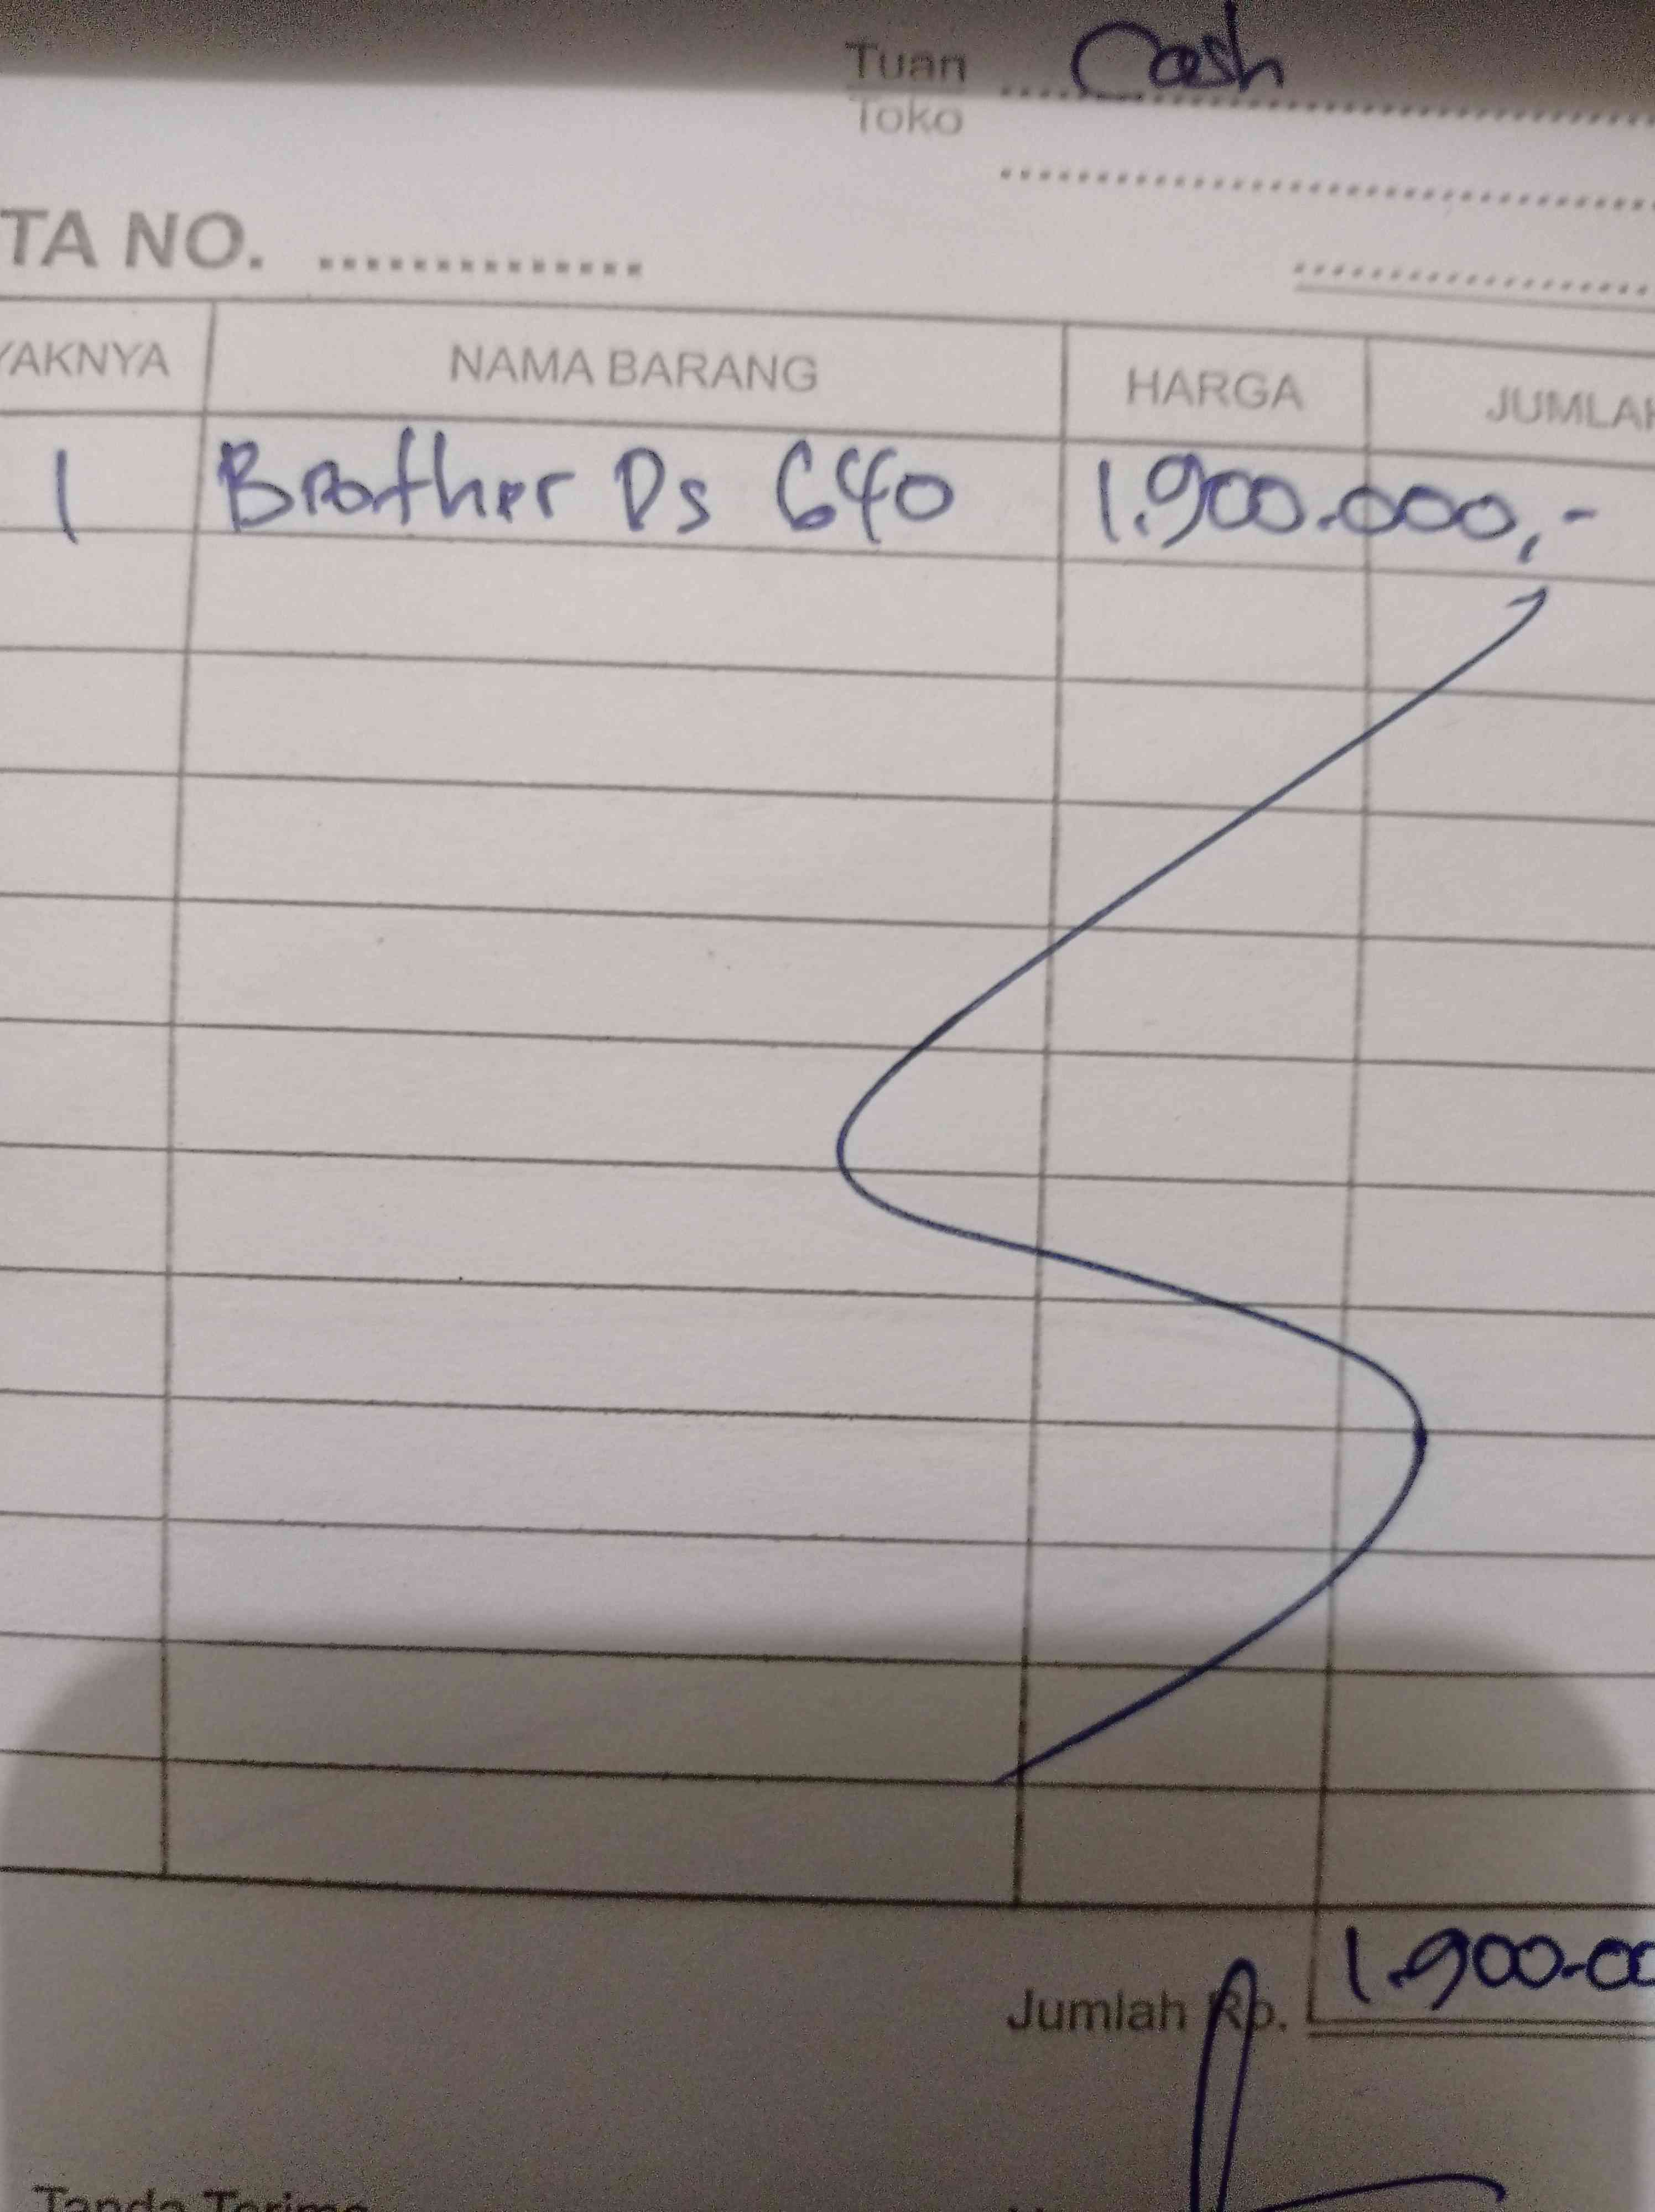 Tuan Cash
Toko
TA NO.
YAKNYA NAMA BARANG HARGA JUMLAH
1 Brother Ds 640 1.900.000,-
Jumlah Rp. 1.900.00
Tanda Terima